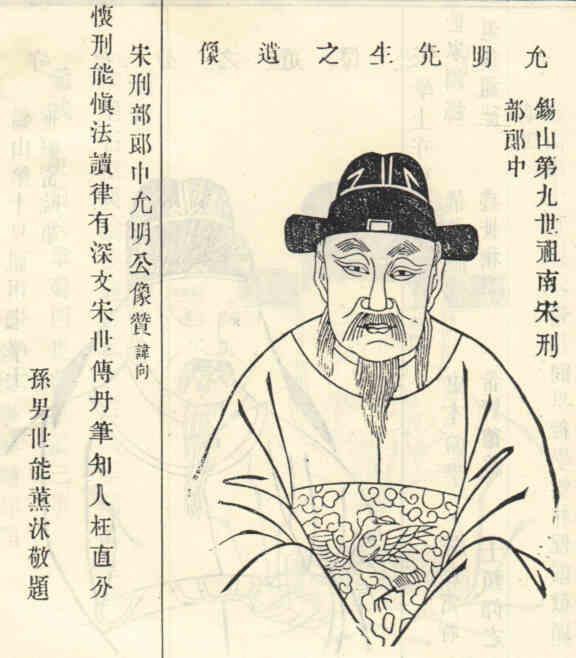 允明先生之遺像
錫山第九世祖南宋刑
部郎中
宋刑部郎中允明公像贊 諱向
懷刑能愼法讀律有深文宋世傳丹筆知人枉直分
孫男世能薰沐敬題